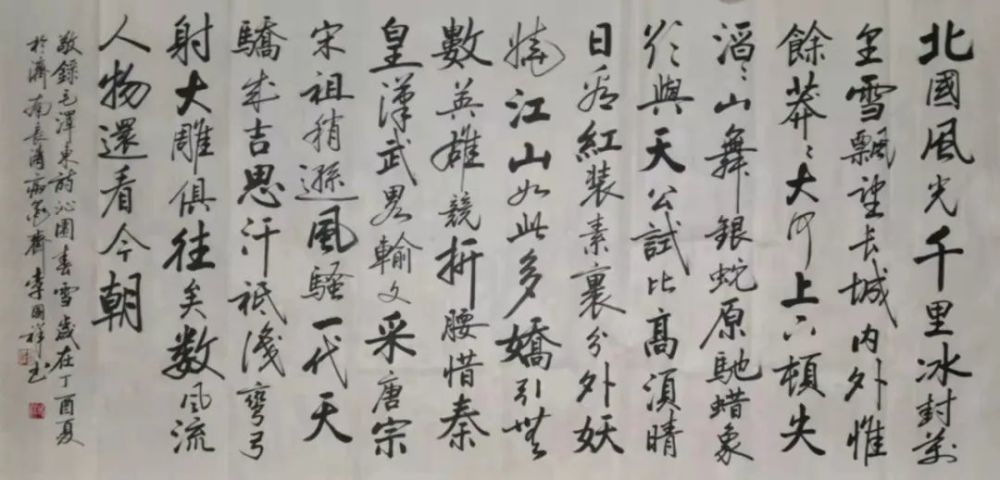 北國風光千里冰封萬
里雪飄望长城内外惟
餘莽〻大河上下頓失
滔〻山舞銀蛇原馳蜡象
欲與天公試比高須晴
日看紅装素裹分外妖
嬈江山如此多嬌引無
數英雄競折腰惜秦
皇漢武畧輸文采唐宗
宋祖稍遜風騷一代天
驕成吉思汗祗識彎弓
射大雕俱往矣数風流
人物還看今朝
敬録毛澤東詩沁園春雪歲在丁酉夏
於濟南長清齋李國祥书